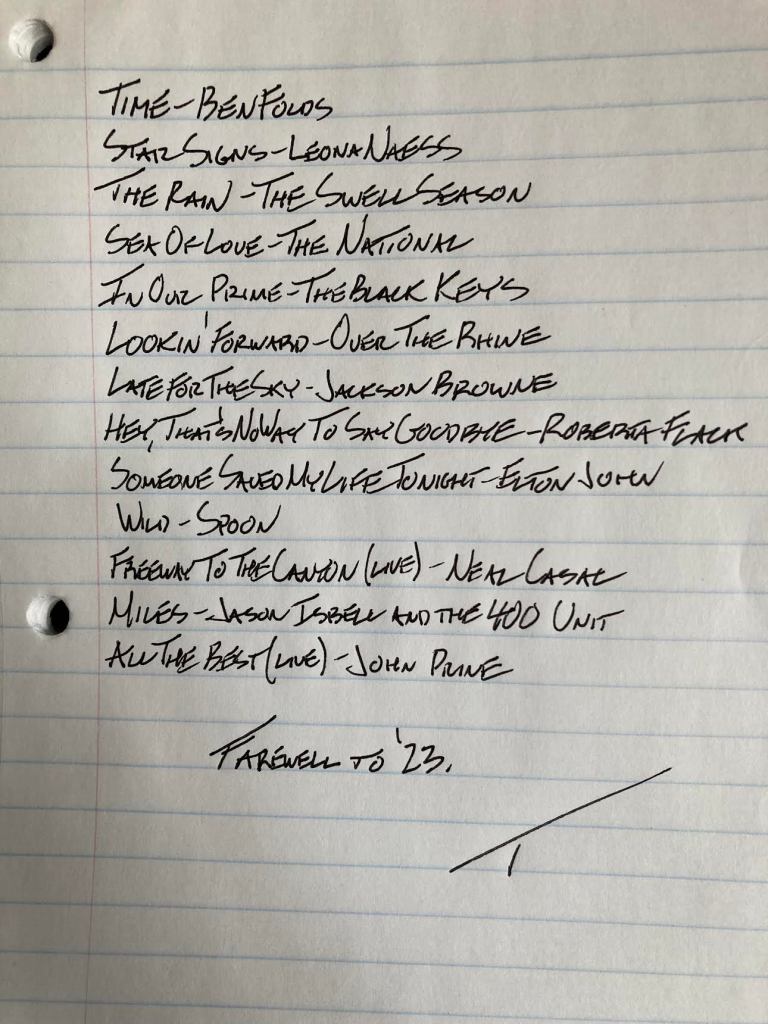 Time - Ben Folds
Star Signs - Leona Naess
The Rain - The Swell Season
Sea Of Love - The National
In Our Prime - The Black Keys
Lookin' Forward - Over The Rhine
Late For The Sky - Jackson Browne
Hey, That's No Way To Say Goodbye - Roberta Flack
Someone Saved My Life Tonight - Elton John
Wild - Spoon
Freeway To The Canyon (Live) - Neal Casal
Miles - Jason Isbell and the 400 Unit
All The Best (Live) - John Prine
Farewell to '23.